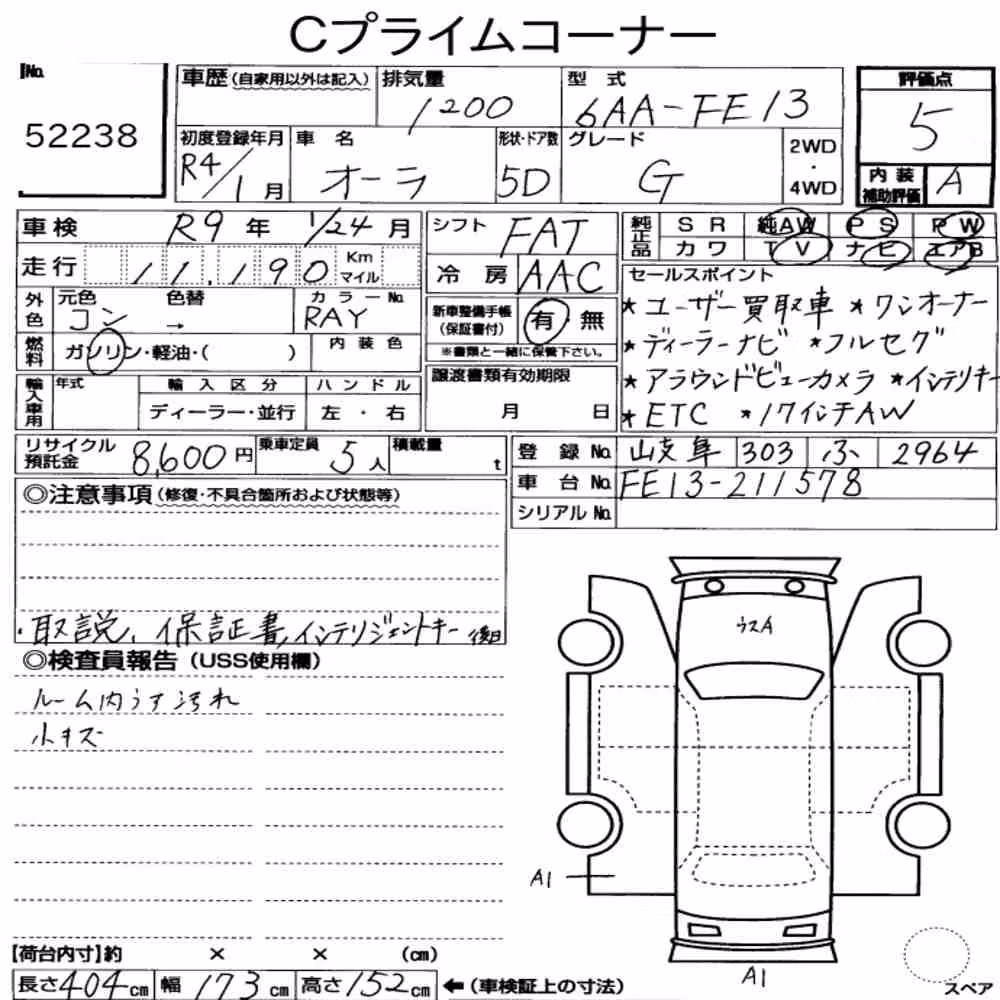 Cプライムコーナー
No.
52238
車歴(自家用以外は記入)
排気量
1200
型式
6AA-FE13
評価点
5
初度登録年月
R4/1月
車名
オーラ
形状・ドア数
5D
グレード
G
2WD
・
4WD
内装補助評価
A
車検
R9年 1/24月
シフト
FAT
純正品
SR 純AW PS PW
カワ TV ナビ エアB
走行
11,190
Km
マイル
冷房
AAC
セールスポイント
★ユーザー買取車 ★ワンオーナー
★ディーラーナビ ★フルセグ
★アラウンドビューカメラ ★インテリキー
★ETC ★17インチAW
外色
元色 色替
コン →
カラーNo.
RAY
新車整備手帳
(保証書付)
有 無
※書類と一緒に保管下さい。
燃料
ガソリン・軽油・( )
内装色
輸入車用
年式
輸入区分
ハンドル
ディーラー・並行
左・右
譲渡書類有効期限
月 日
リサイクル預託金
8,600円
乗車定員
5人
積載量
t
登録No. 岐阜 303 ふ 2964
車台No. FE13-211578
シリアルNo.
◎注意事項(修復・不具合箇所および状態等)
・取説、保証書、インテリジェントキー 後日
◎検査員報告(USS使用欄)
ルーム内うす汚れ
小キズ
ウスA
A1
A1
【荷台内寸】約 × × (cm)
長さ404cm 幅173cm 高さ152cm ←(車検証上の寸法)
スペア